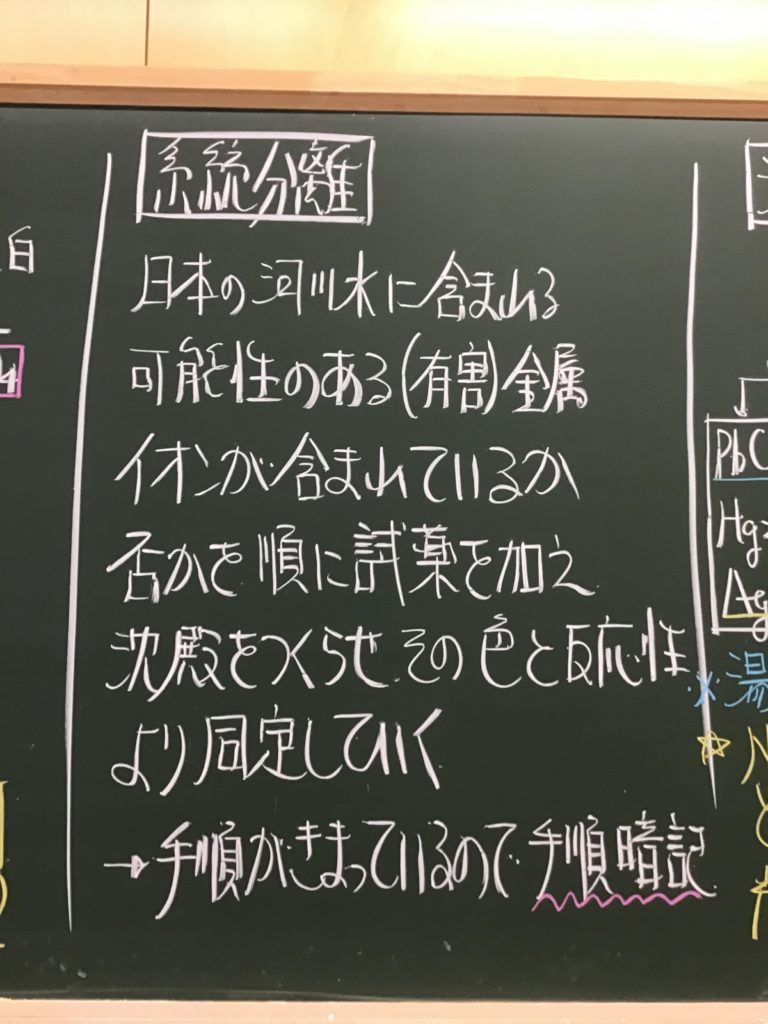 白
4
系統分離
日本の河川水に含まれる
可能性のある(有害)金属
イオンが含まれているか
否かを順に試薬を加え
沈殿をつくらせ その色と反応性
より同定していく
→手順がきまっているので手順暗記
PbC
Hg
Ag
※湯
☆
と